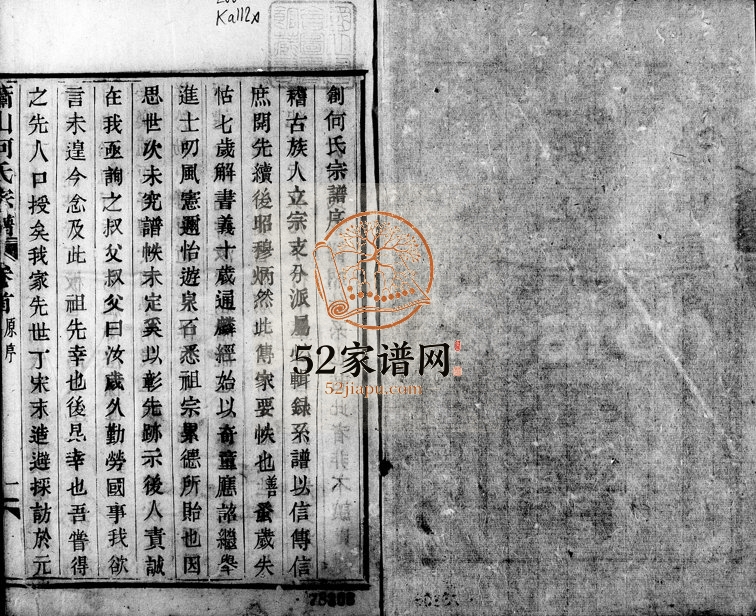 Ka112A
創何氏宗譜序
稽古族大立宗支分派屬 輯錄系譜以信傳信
庶開先續後昭穆炳然此傳家要帙也善 歲失
怙七歲解書義十歲通麟經始以奇童應詔繼舉
進士叨風憲邇怡遊泉石悉祖宗累德所貽也因
思世次未究譜帙未定奚以彰先跡示後人責誠
在我亟詢之叔父叔父曰汝歲久勤勞國事我欲
言未遑今念及此 祖先幸也後昆幸也吾嘗得
之先人口授矣我家先世丁宋末造避採訪於元
蕭山何氏宗譜
卷首
原序
一
52家谱网
52jiapu.com